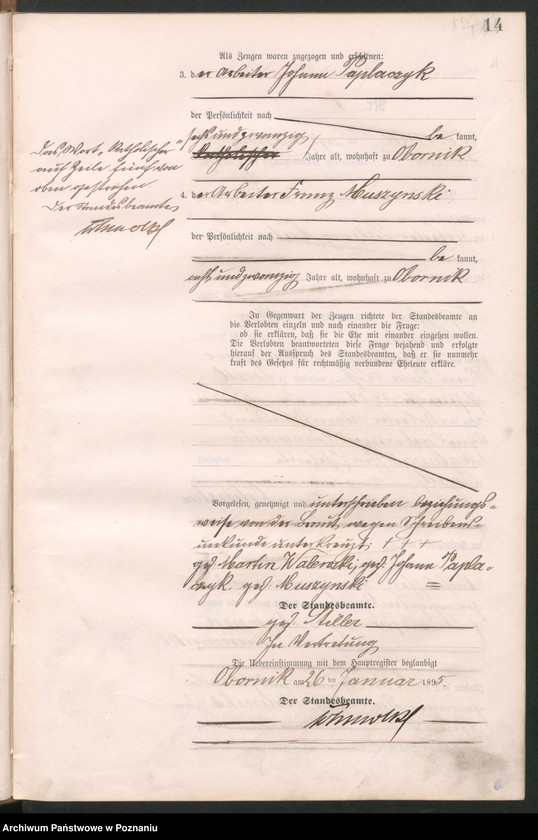 14
Als Zeugen waren zugezogen und erschienen:
3. der Arbeiter Johann Paplaczyk
der Persönlichkeit nach
be kannt,
sechsundzwanzig
Katholischer Jahre alt, wohnhaft zu Obornik
Das Wort „Katholischer"
auf Zeile fünf von
oben gestrichen
Der Standesbeamte
4. der Arbeiter Franz Muszynski
der Persönlichkeit nach
be kannt,
achtundzwanzig Jahre alt, wohnhaft zu Obornik
In Gegenwart der Zeugen richtete der Standesbeamte an
die Verlobten einzeln und nach einander die Frage:
ob sie erklären, daß sie die Ehe mit einander eingehen wollen.
Die Verlobten beantworteten diese Frage bejahend und erfolgte
hierauf der Ausspruch des Standesbeamten, daß er sie nunmehr
kraft des Gesetzes für rechtmäßig verbundene Eheleute erkläre.
Vorgelesen, genehmigt und unterschrieben beziehungs-
weise von der Braut wegen Schreibens-
unkunde unterkreuzt: + + +
gez. Martin Walenski, gez. Johann Papla-
czyk. gez. Muszynski
Der Standesbeamte.
gez. Stiller
In Vertretung
Die Uebereinstimmung mit dem Hauptregister beglaubigt
Obornik am 26 ten Januar 1895.
Der Standesbeamte.
6
Archiwum Państwowe w Poznaniu